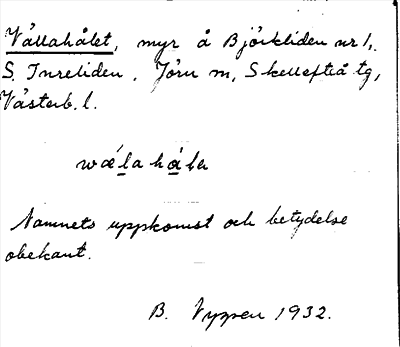 Vållahålet, myr å Björkliden nr 1,
S. Inreliden, Jörn m, Skellefteå tg,
Västerb. l.
wǽlahá̱la
Namnets uppkomst och betydelse
obekant.
B. 1932.